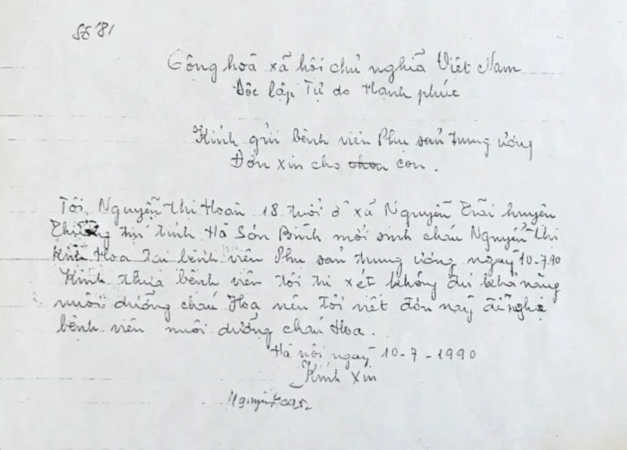 Số 81
Cộng hoà xã hội chủ nghĩa Việt Nam
Độc lập Tự do Hạnh phúc
Kính gửi bệnh viện Phụ sản trung ương
Đơn xin cho con.
Tôi, Nguyễn Thị Hoan 18 tuổi ở xã Nguyễn Trãi huyện
Thường tín tỉnh Hà Sơn Bình mới sinh cháu Nguyễn Thị
Hoa tại bệnh viện Phụ sản trung ương ngày 10-7-90
Kính thưa bệnh viện tôi tự xét không đủ khả năng
nuôi dưỡng cháu Hoa nên tôi viết đơn này đề nghị
bệnh viện nuôi dưỡng cháu Hoa.
Hà nội ngày 10-7-1990
Kính xin